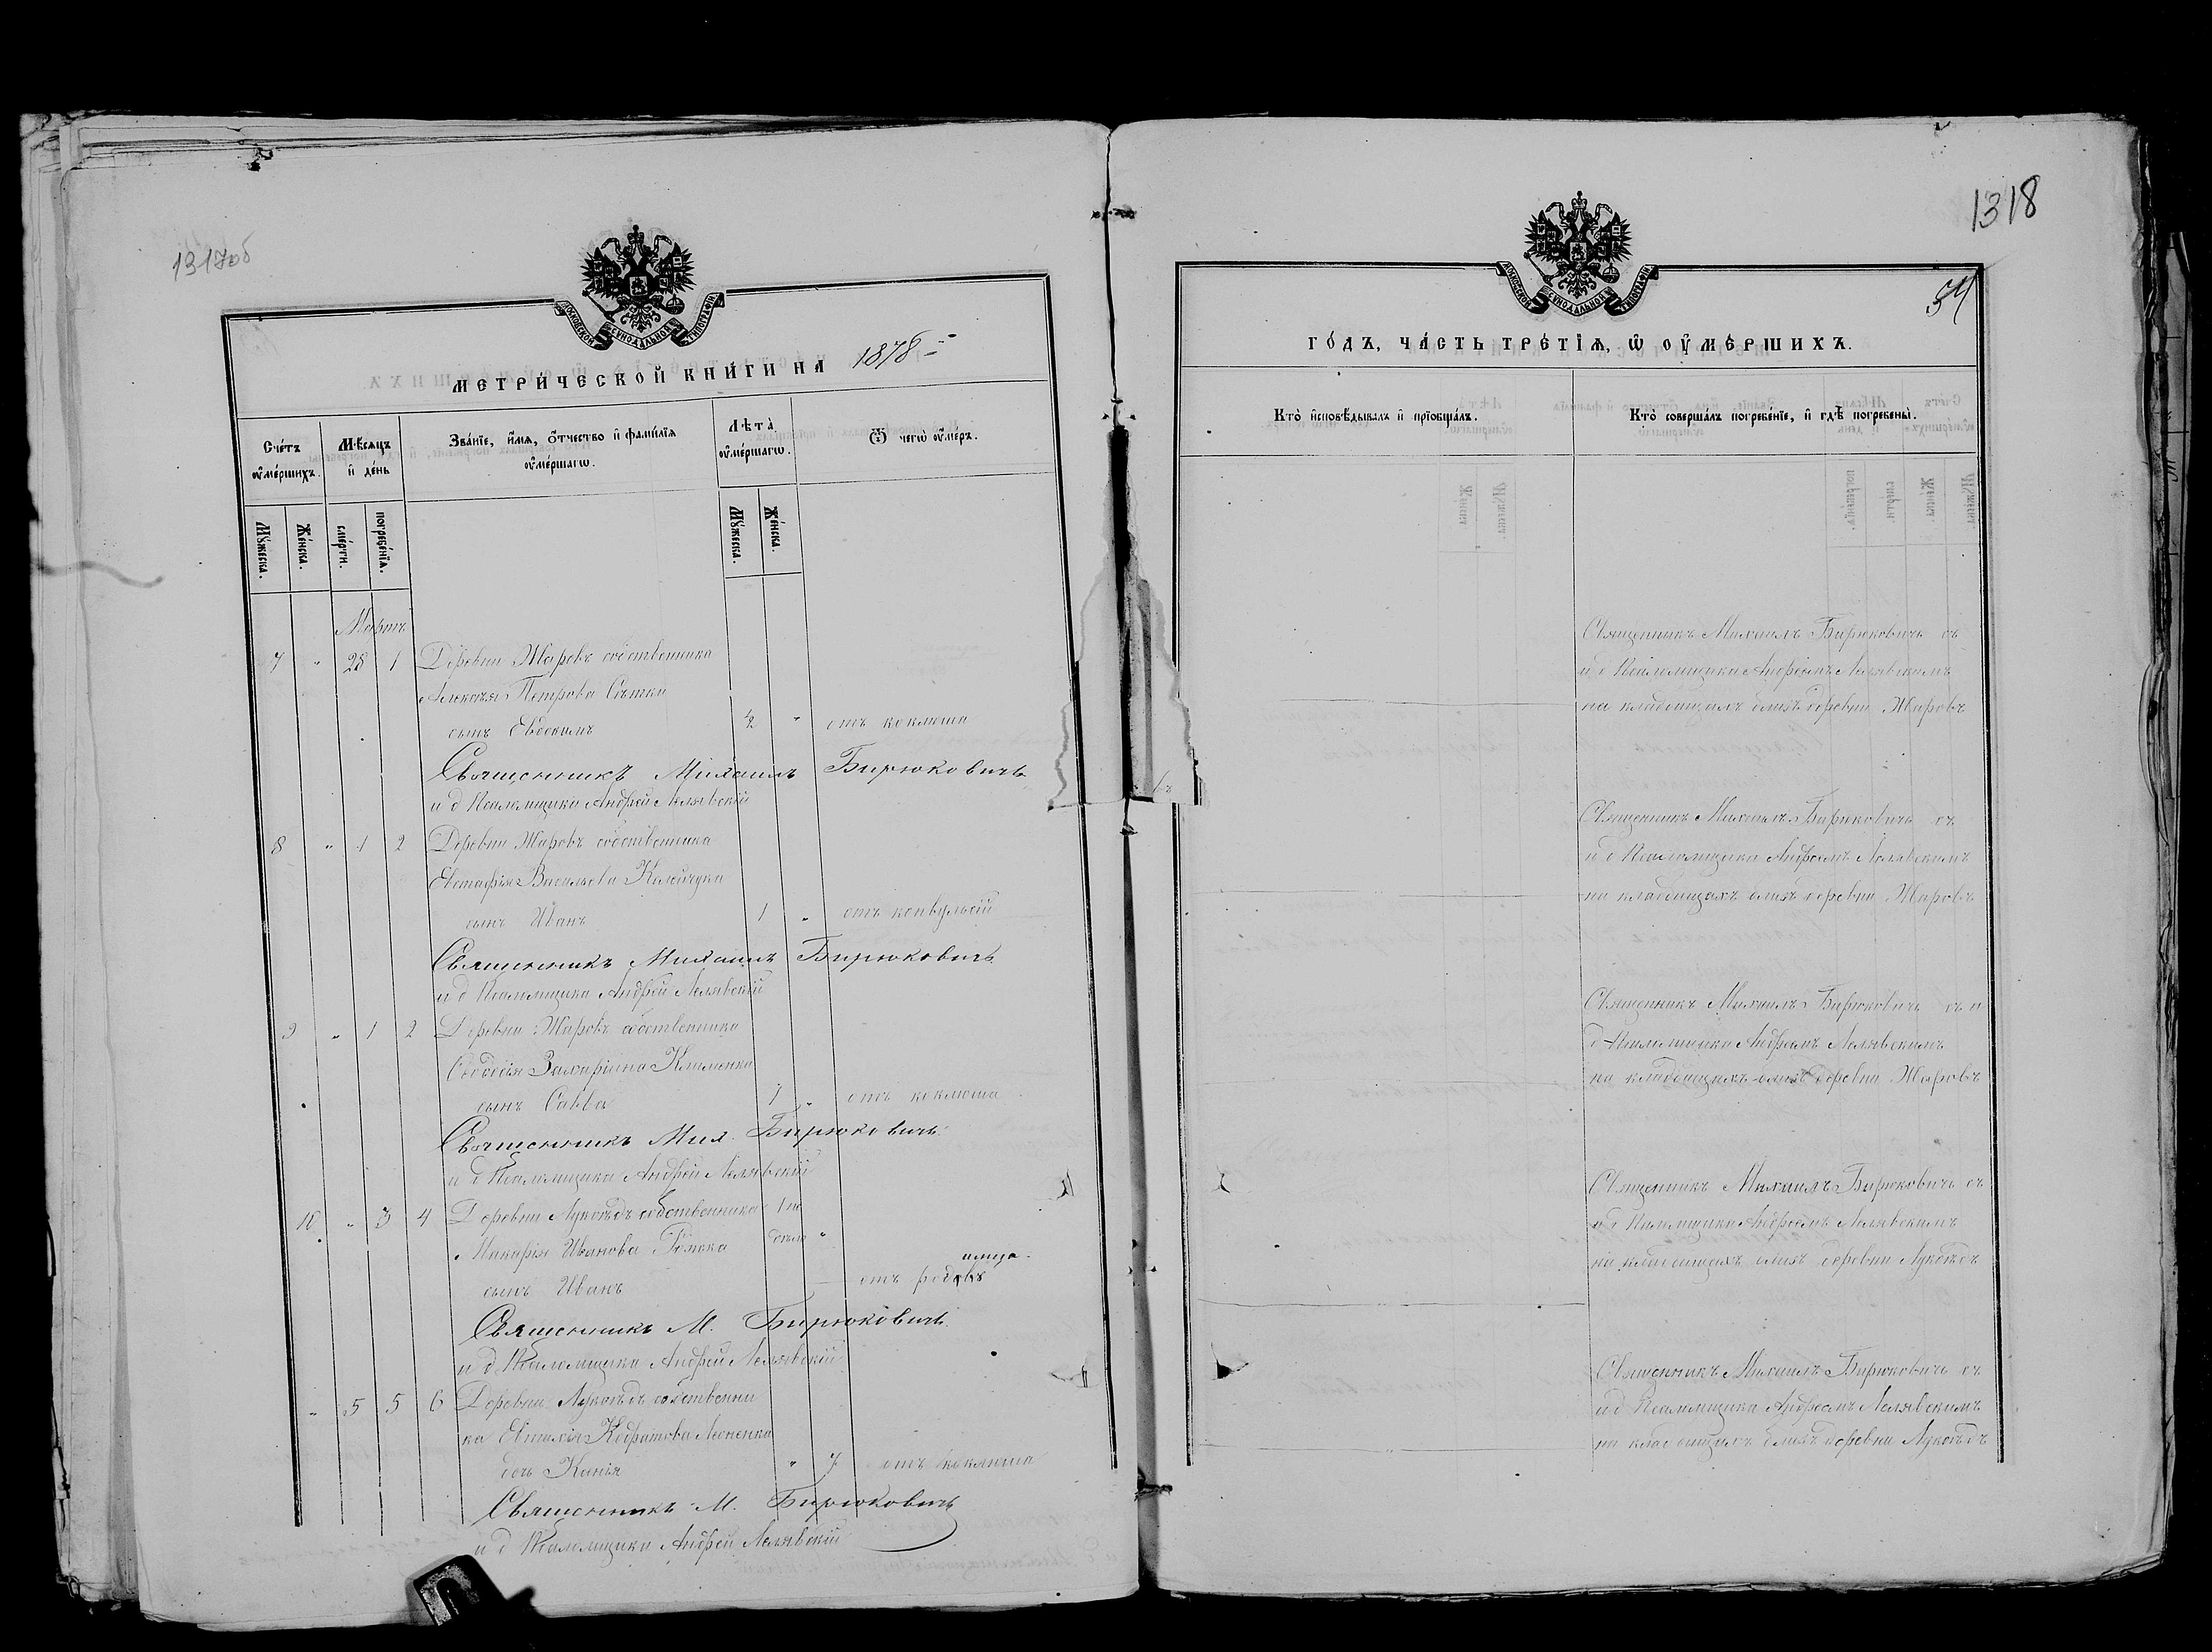 1317об
МОСКОВСКОЙ СѴНОДАЛЬНОЙ ТИПОГРАФІИ
МЕТРИ́ЧЕСКОЙ КНИ́ГИ НА 1878
Сче́тъ оу҆ме́ршихъ.
Мѣ́сяцъ и҆ де́нь
Зва́нїе, и҆́мѧ, ѻ҆́тчество и҆ фамі́лїѧ оу҆ме́ршагѡ.
Лѣ́та оу҆ме́ршагѡ.
Ѿ чегѡ̀ оу҆ме́ръ.
Мꙋ́жеска.
Же́нска.
сме́рти.
погребе́нїѧ.
Мꙋ́жеска.
Же́нска.
Мартъ
7 " 28 1 Деревни Жаровъ собственника
Алексѣя Петрова
сынъ Евдокимъ " отъ коклюша
Священникъ Михаилъ Бирюковичъ
и д Псаломщика Андрей Лелявскій
8 " 1 2 Деревни Жаровъ собственника
Евстафія Васильева
сынъ Иванъ 1 " отъ конвульсій
Священникъ Михаилъ Бирюковичъ
и д Псаломщика Андрей Лелявскій
9 " 1 2 Деревни Жаровъ собственника
Захаріина Клименка
сынъ Савва " отъ коклюша
Священникъ Мих. Бирюковичъ
и д Псаломщика Андрей Лелявскій
10 " 3 4 Деревни собственника
Макарія Иванова "
сынъ Иванъ отъ
Священникъ М. Бирюковичъ
и д Псаломщика Андрей Лелявскій
" 5 5 6 Деревни собственни
ка Евтихія Кодратова Леоненка
дочь " 7 отъ коклюша
Священникъ М. Бирюковичъ
и д Псаломщика Андрей Лелявскій
1318
54
МОСКОВСКОЙ СѴНОДАЛЬНОЙ ТИПОГРАФІИ
ГО́ДЪ, ЧА́СТЬ ТРЕ́ТЇѦ, Ѡ҆ ОУ҆МЕ́РШИХЪ.
Кто̀ и҆сповѣ́дывалъ и҆ прїѡбща́лъ.
Кто̀ соверша́лъ погребе́нїе, и҆ гдѣ̀ погребены̀.
Священникъ Михаилъ Бирюковичъ съ
и д Псаломщика Андреемъ Лелявскимъ
на кладбищахъ близъ деревни Жаровъ
Священникъ Михаилъ Бирюковичъ съ
и д Псаломщика Андреемъ Лелявскимъ
на кладбищахъ близъ деревни Жаровъ
Священникъ Михаилъ Бирюковичъ съ и
д Псаломщика Андреемъ Лелявскимъ
на кладбищахъ близъ деревни Жаровъ
Священникъ Михаилъ Бирюковичъ съ
и д Псаломщика Андреемъ Лелявскимъ
на кладбищахъ близъ деревни
Священникъ Михаилъ Бирюковичъ съ
и д Псаломщика Андреемъ Лелявскимъ
на кладбищахъ близъ деревни